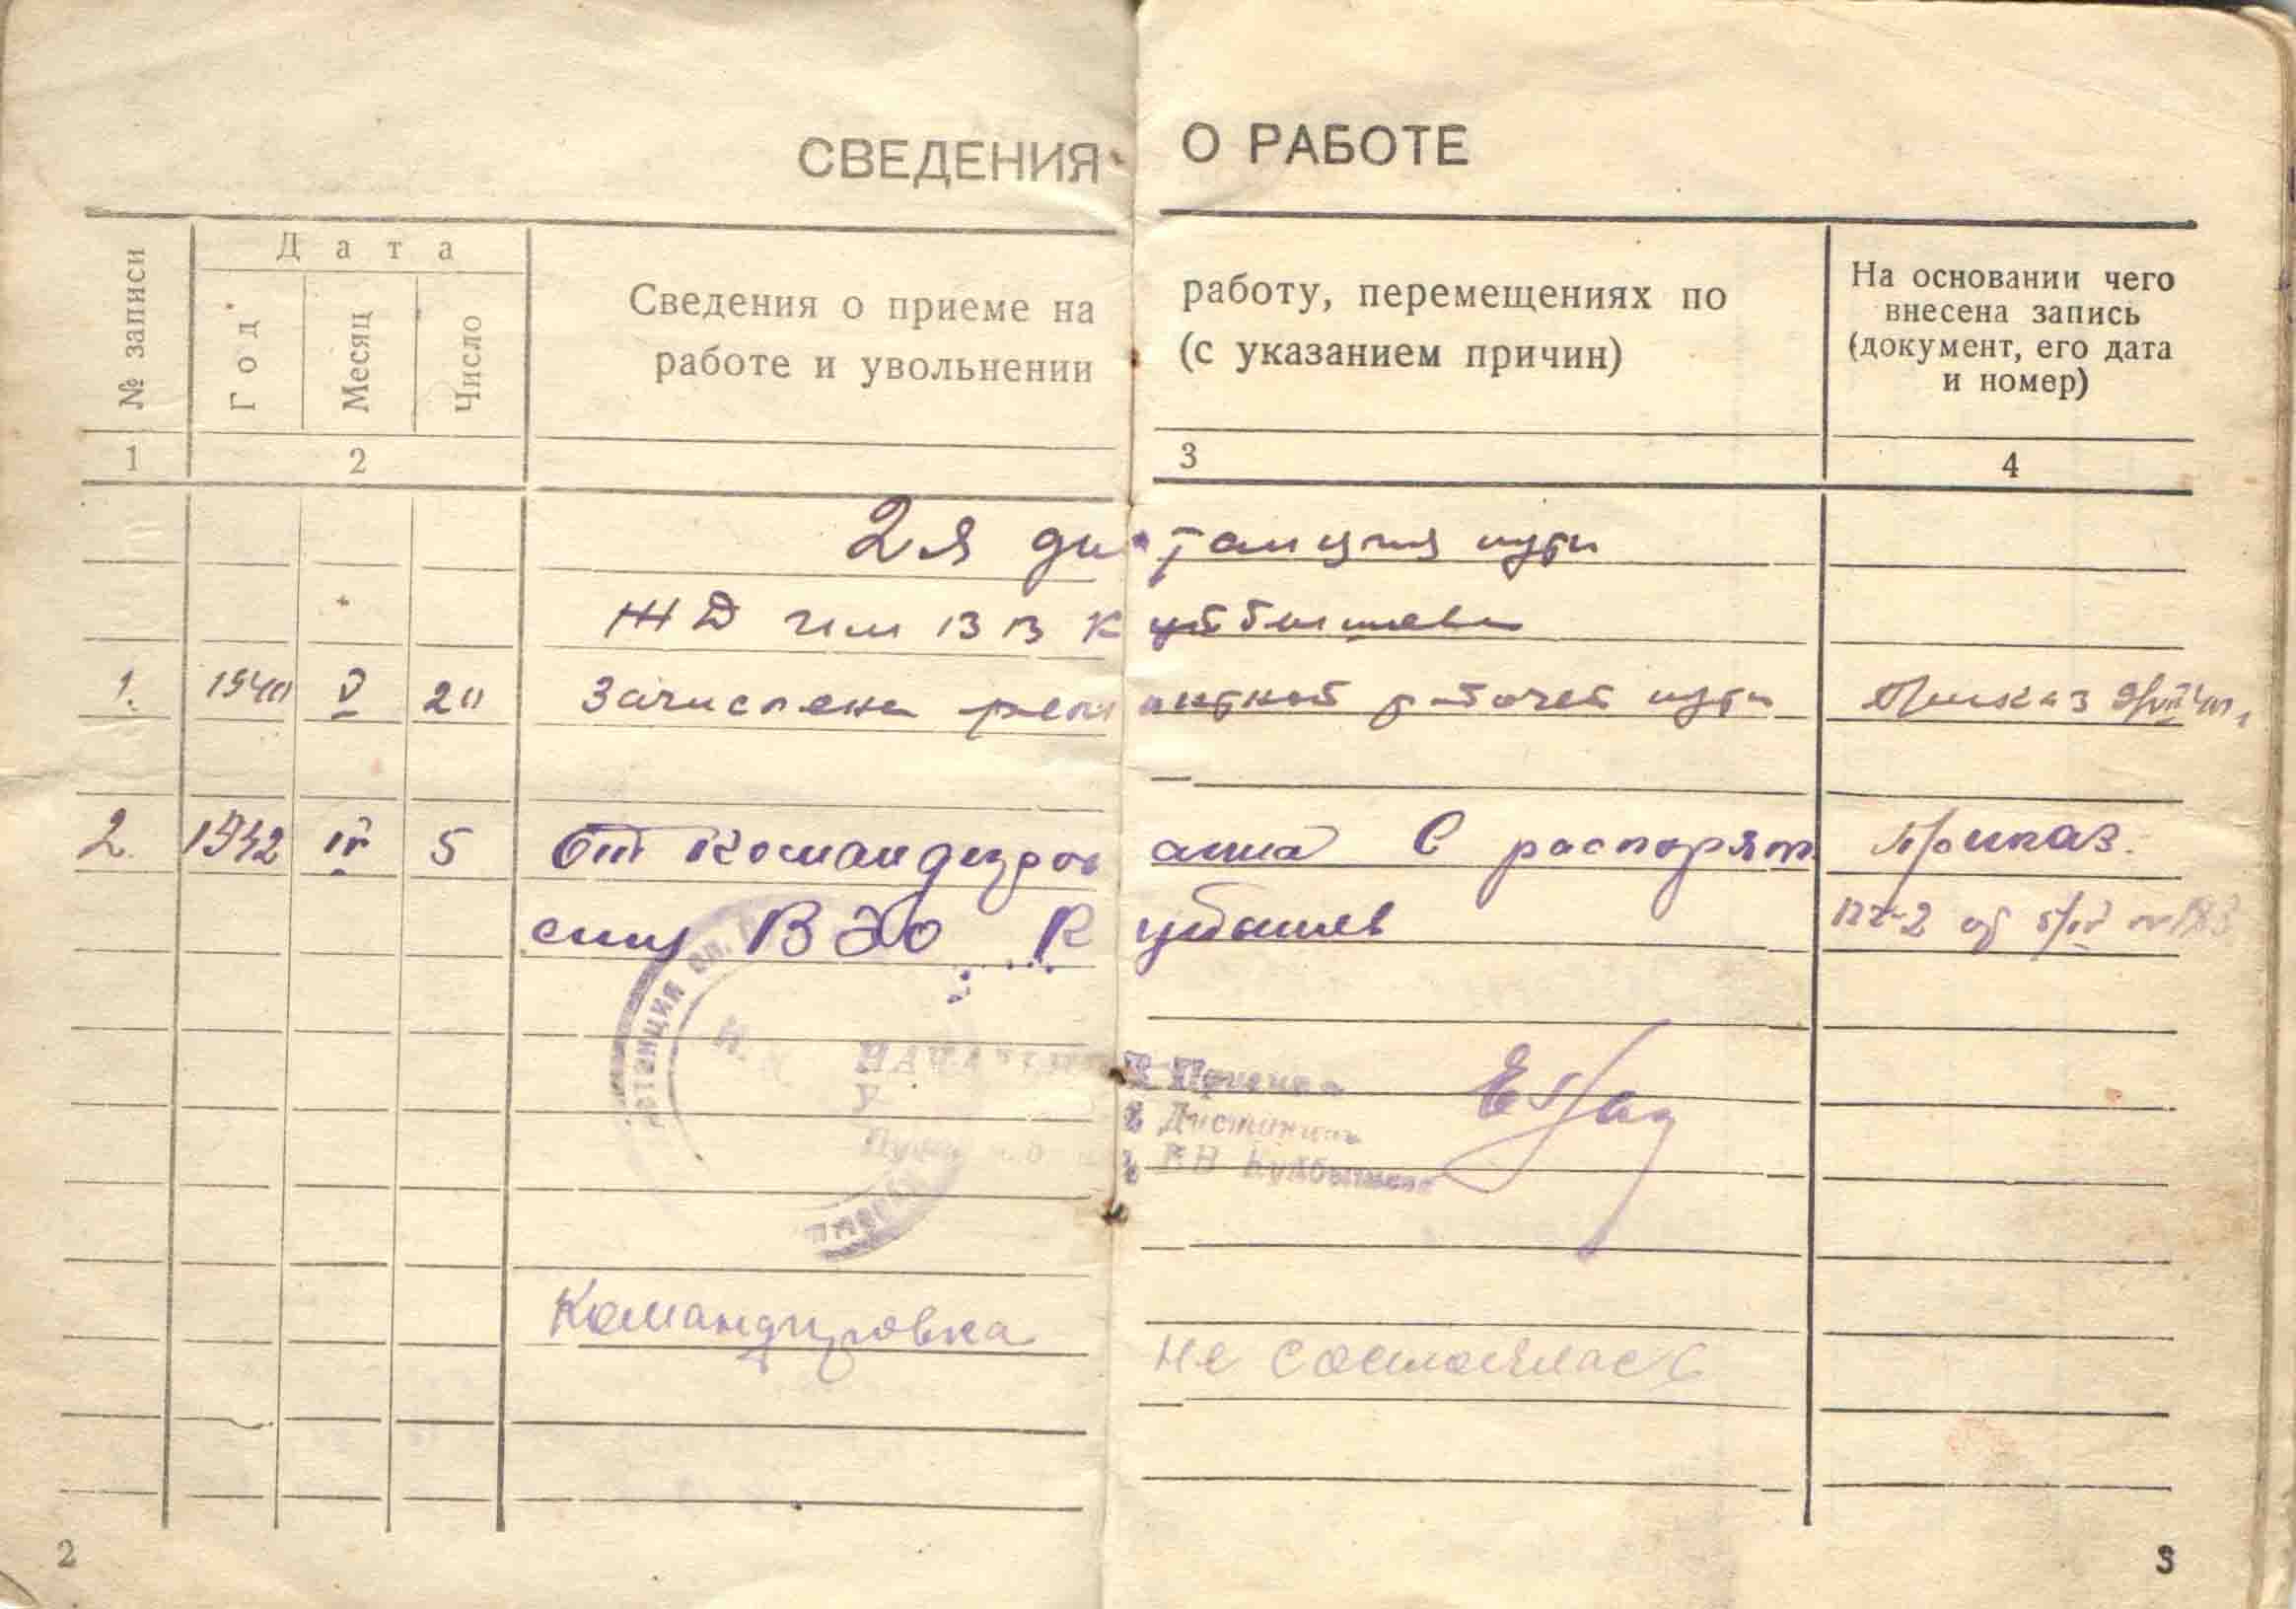 СВЕДЕНИЯ О РАБОТЕ
№ записи
Дата
Год
Месяц
Число
Сведения о приеме на работу, перемещениях по
работе и увольнении (с указанием причин)
На основании чего
внесена запись
(документ, его дата
и номер)
1 2 3 4
2я дистанция пути
ЖД им ВВ Куйбышева
1. 1940 V 20 Зачислена ремонтной рабочей пути Приказ
2. 1942 IV 5 Откомандирована В распоряж Приказ.
ВЭО Куйбышев ПЧ-2 от 5/IV
Дистанции
Куйбышева
Командировка не состоялась
2
3